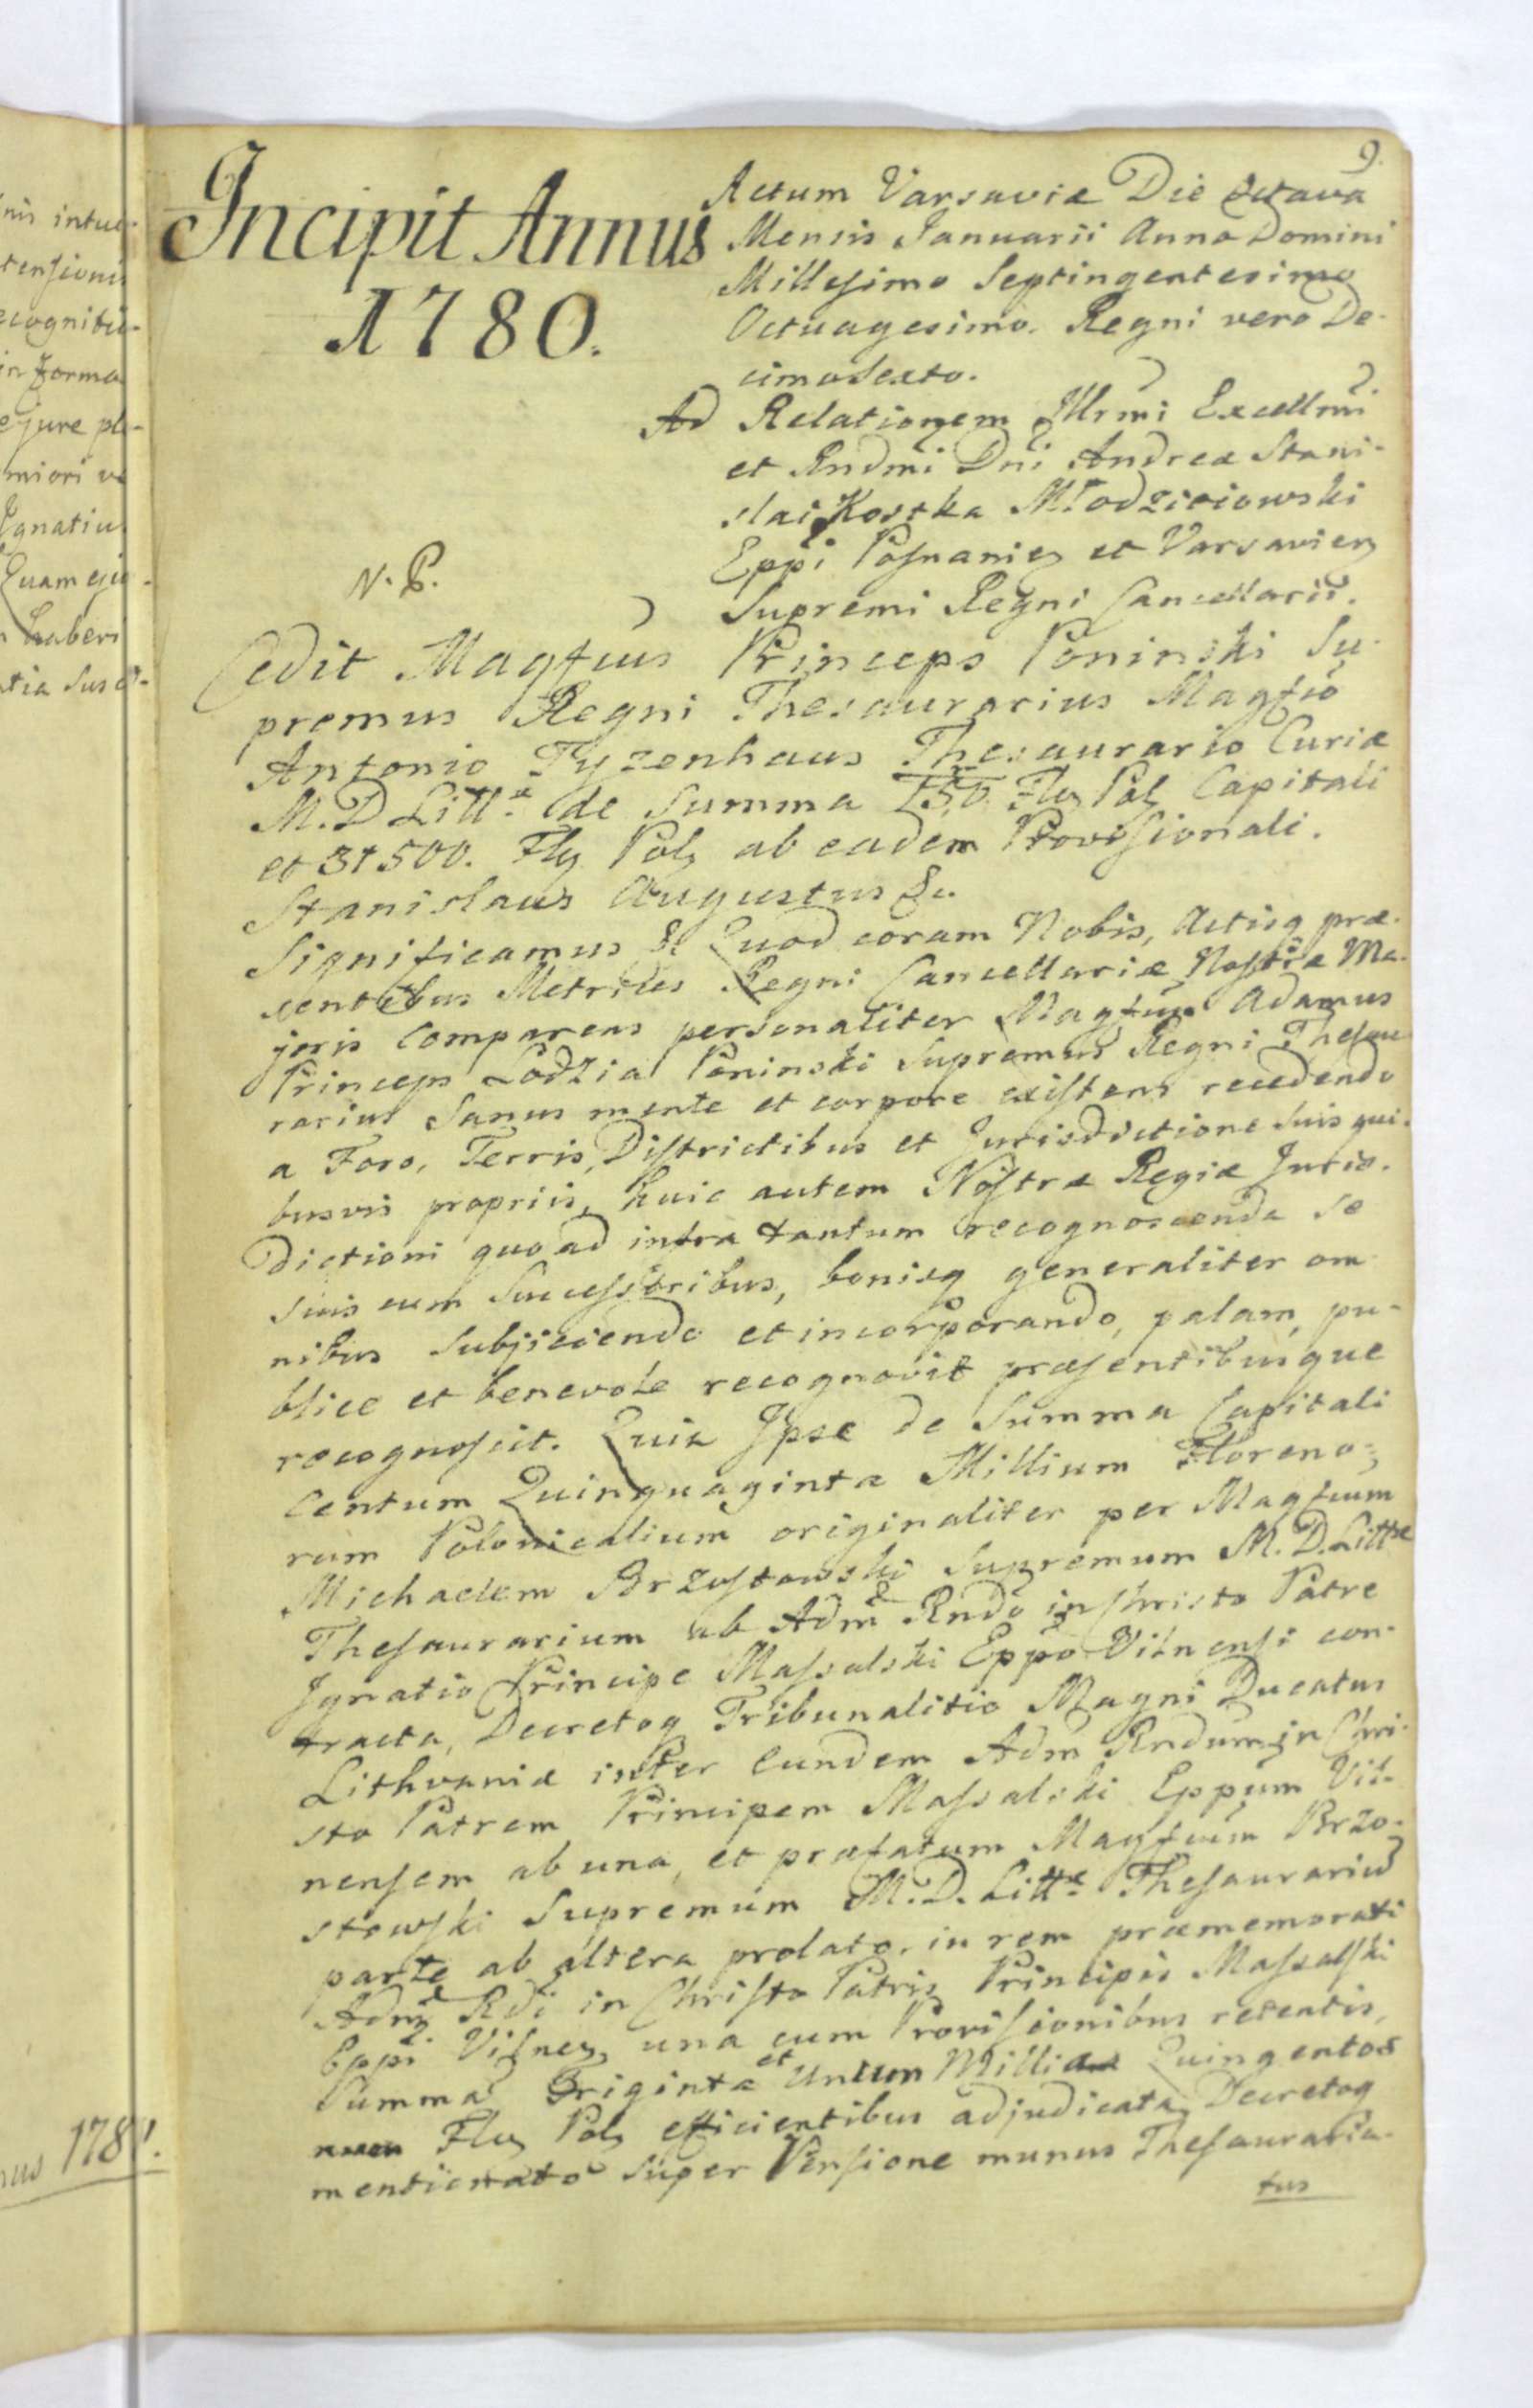 9.
Incipit Annus
1780.
Actum Varsaviæ Die octava
Mensis Januarii Anno Domini
Millesimo Septingentesimo
Octuagesimo. Regni vero De-
cimo Sexto.
Ad Relationem Illrmi Excellmi
et Rndmi Dni Andreæ Stani-
slai Kostka Młodzieiowski
Eppi Posnanien et Varsavien
Supremi Regni Cancellarii.
N. P.
Cedit Magfcus Princeps Poninski Su-
premus Regni Thesaurarius Magfco
Antonio Tyzenhaus Thesaurario Curiæ
M. D Litt. de Summa 150 Flor Pol Capitali
et 31500. Flor Pol ab eadem Provisionali.
Stanislaus Augustus &c.
Significamus &c Quod coram Nobis, Actisq præ-
sentibus Metrices Regni Cancellariæ Nostræ Ma-
joris Comparens personaliter Magfcus Adamus
Princeps Lodzia Poninski Supremus Regni Thesau-
rarius Sanus mente et corpore existens recedendo
a Foro, Terris, Districtibus et Jurisdictione Suis qui-
busvis propriis, huic autem Nostræ Regiæ Juris-
dictioni quo ad infra tantum recognoscenda se
suis cum Successoribus, bonisq generaliter om
nibus Subjiciendo et incorporando, palam, pu-
blice et benevole recognovit præsentibusque
recognoscit. Quia Ipse de Summa Capitali
Centum Quinquaginta Millium Floreno-
rum Polonicalium originaliter per Magfcum
Michaelem Brzostowski Supremum M. D. Littæ
Thesaurarium ab Adm Rndo in Christo Patre
Ignatio Principe Massalski Eppo Vilnensi con-
tracta, Decretoq Tribunalitio Magni Ducatus
Lithvaniæ inter Eundem Adm Rndum in Chri-
sto Patrem Principem Massalski Eppum Vil-
nensem ab una, et præfatum Magfcum Brzo-
stowski Supremum M. D. Littæ Thesaurariu
parte ab altera prolato, in rem præmemorati
Adm Rdi in Christo Patris Principis Massalski
Eppi Vilnen, una cum Provisionibus retentis,
Summa Triginta et Unum Millia Quingentos
Flor Pol efficientibus adjudicata, Decretoq
mentionato Super Pensione munus Thesauraria-
tus
nis intue-
tensionis
ecognitio-
in forma
e jure ple-
miori
Ignatiu
Quam ejus
haberi
nus 178